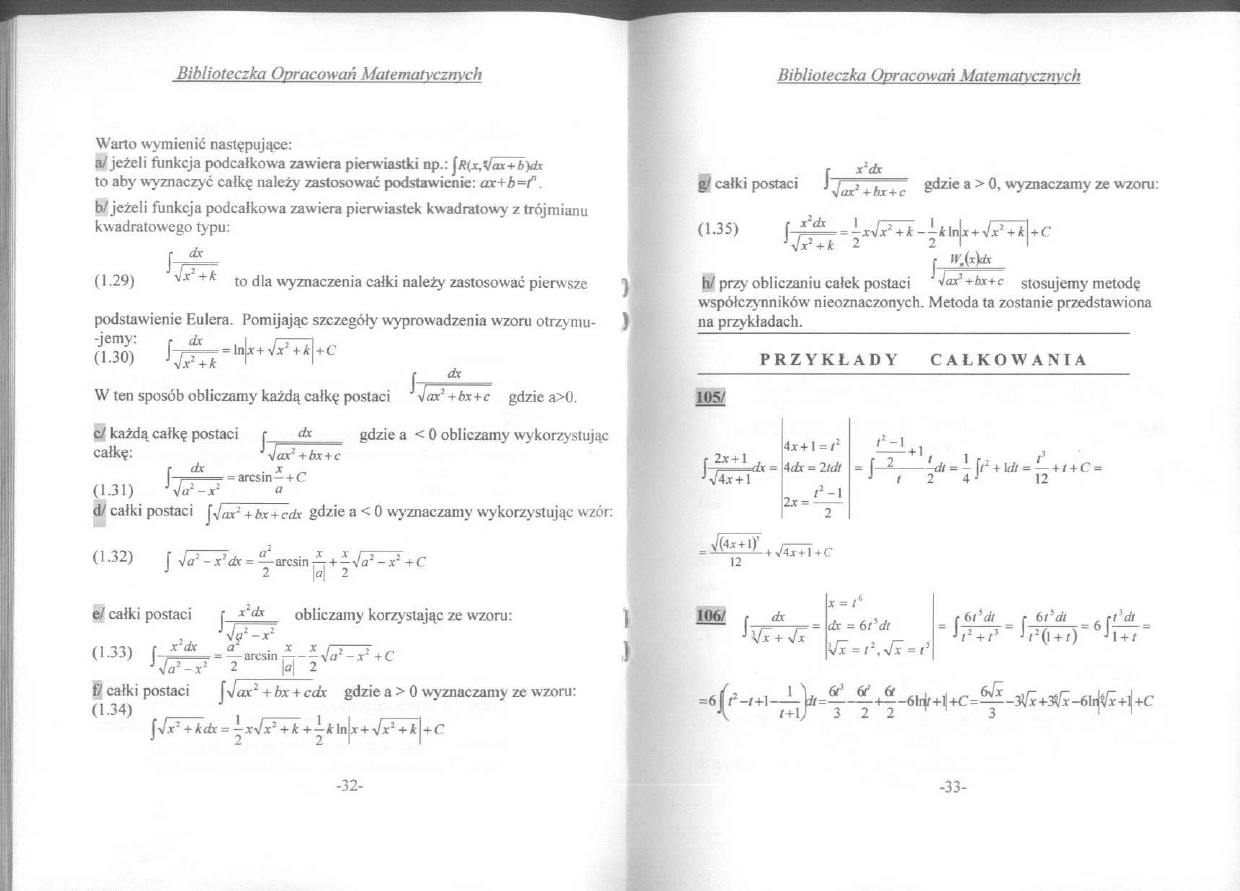 Biblioteczka Opracowań Matematycznych
Warto wymienić następujące:
a/ jeżeli funkcja podcałkowa zawiera pierwiastki np.: ∫R(x,ⁿ√(ax+b))dx
to aby wyznaczyć całkę należy zastosować podstawienie: ax+b=tⁿ.
b/ jeżeli funkcja podcałkowa zawiera pierwiastek kwadratowy z trójmianu
kwadratowego typu:
(1.29) ∫ dx/√(x²+k) to dla wyznaczenia całki należy zastosować pierwsze
podstawienie Eulera. Pomijając szczegóły wyprowadzenia wzoru otrzymu-
-jemy:
(1.30) ∫ dx/√(x²+k) = ln|x+√(x²+k)|+C
W ten sposób obliczamy każdą całkę postaci ∫ dx/√(ax²+bx+c) gdzie a>0.
c/ każdą całkę postaci ∫ dx/√(ax²+bx+c) gdzie a < 0 obliczamy wykorzystując
całkę:
(1.31) ∫ dx/√(a²-x²) = arcsin x/a + C
d/ całki postaci ∫√(ax²+bx+c)dx gdzie a < 0 wyznaczamy wykorzystując wzór:
(1.32) ∫ √(a²-x²)dx = a²/2 arcsin x/|a| + x/2 √(a²-x²) + C
e/ całki postaci ∫ x²dx/√(a²-x²) obliczamy korzystając ze wzoru:
(1.33) ∫ x²dx/√(a²-x²) = a²/2 arcsin x/|a| - x/2 √(a²-x²) + C
f/ całki postaci ∫√(ax²+bx+c)dx gdzie a > 0 wyznaczamy ze wzoru:
(1.34)
∫√(x²+k)dx = 1/2 x√(x²+k) + 1/2 k ln|x+√(x²+k)| + C
-32-
Biblioteczka Opracowań Matematycznych
g/ całki postaci ∫ x²dx/√(ax²+bx+c) gdzie a > 0, wyznaczamy ze wzoru:
(1.35) ∫ x²dx/√(x²+k) = 1/2 x√(x²+k) - 1/2 k ln|x+√(x²+k)| + C
h/ przy obliczaniu całek postaci ∫ Wₙ(x)dx/√(ax²+bx+c) stosujemy metodę
współczynników nieoznaczonych. Metoda ta zostanie przedstawiona
na przykładach.
PRZYKŁADY CAŁKOWANIA
105/
∫ (2x+1)/√(4x+1) dx = |4x+1=t² 4dx=2tdt 2x=(t²-1)/2| = ∫ ((t²-1)/2+1)/t · t/2 dt = 1/4 ∫t²+1dt = t³/12 + t + C =
= √((4x+1)³)/12 + √(4x+1) + C
106/ ∫ dx/(∛x+√x) = |x=t⁶ dx=6t⁵dt ∛x=t²,√x=t³| = ∫ 6t⁵dt/(t²+t³) = ∫ 6t⁵dt/(t²(1+t)) = 6∫ t³dt/(1+t) =
=6∫(t²-t+1-1/(t+1))dt=6t³/3-6t²/2+6t/2-6ln|t+1|+C=6√x/3-3∛x+3⁶√x-6ln|⁶√x+1|+C
-33-